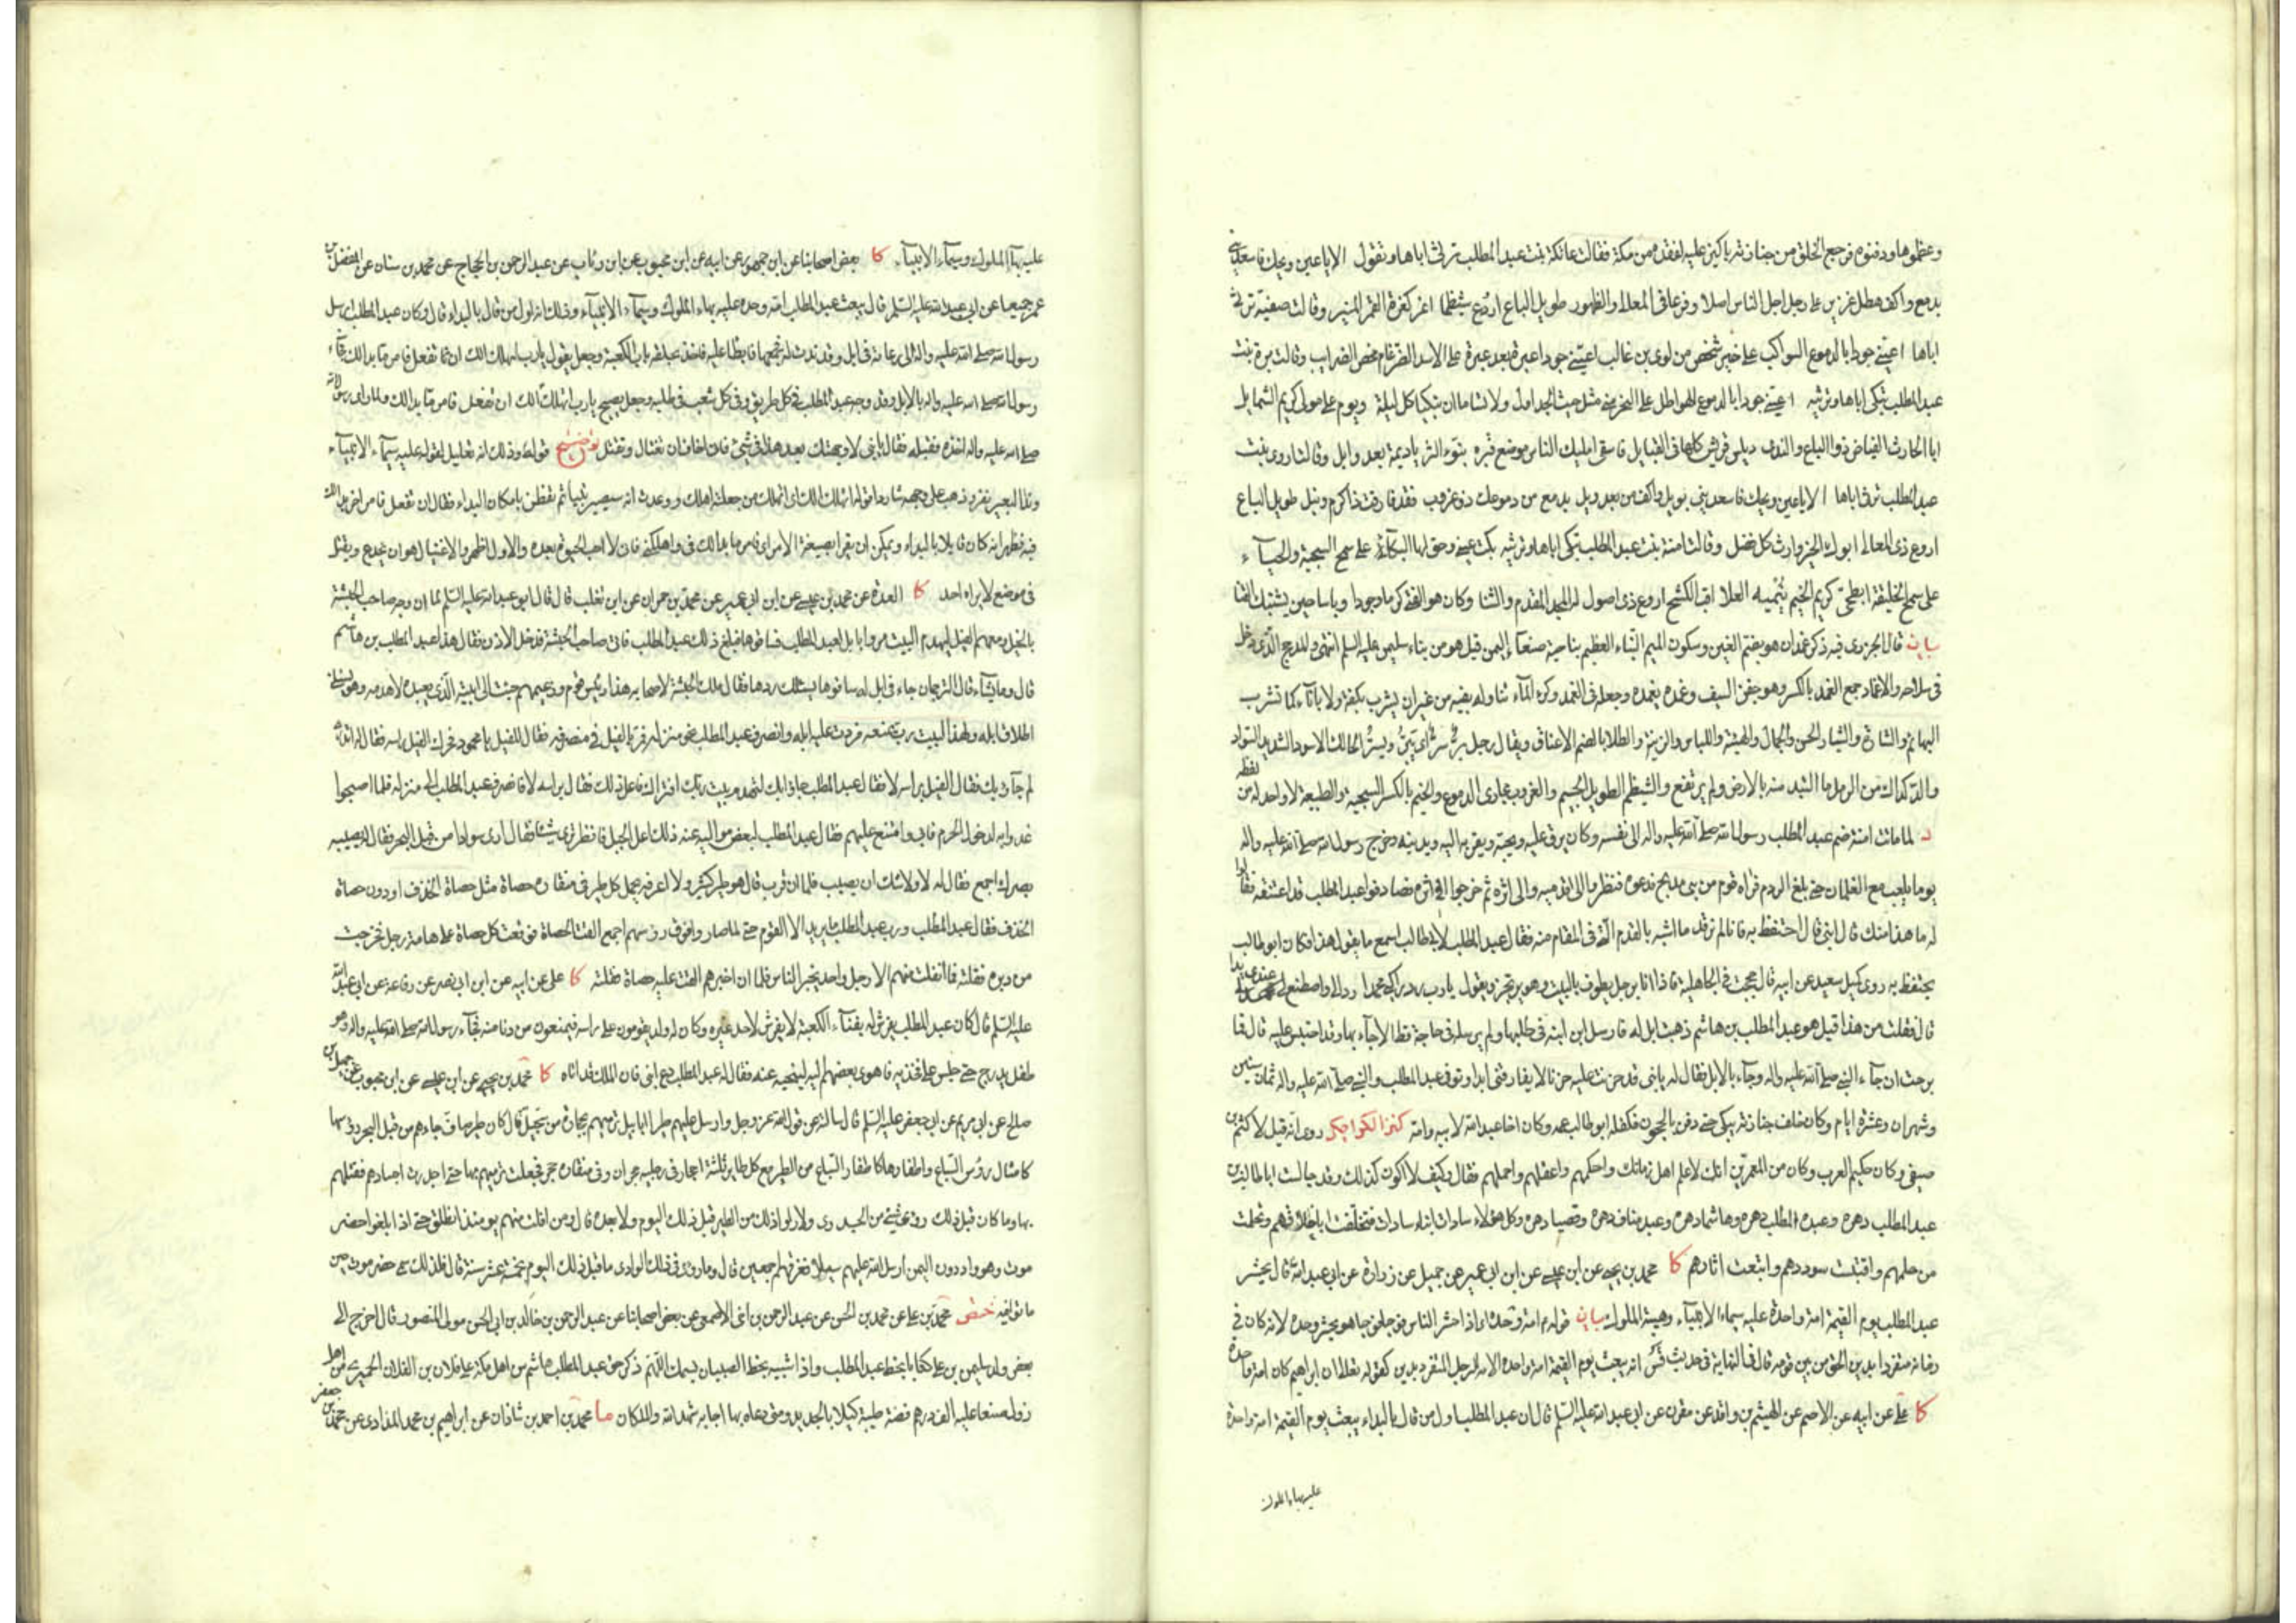 وعظموها ودفنوه فرجع الخلق من جنازته باكين عليه لفقده من مكة فقالت عاتكة بنت عبد المطلب ترثي اباها وتقول الا يا عين ويحك فاسعديني
بدمع واكف هطل غزير على رجل اجل الناس اصلا وفرعا في المعالي والظهور طويل الباع اروع شيظما اغر كغرة القمر المنير وقالت صفية ترثي
اباها اعينى جودا بالدموع السواكب على خير شخص من لوى بن غالب اعينى جودا عبرة بعد عبرة على الاسد الضرغام محض الضرايب وقالت برة بنت
عبد المطلب تبكى اباها وترثيه اعينى جودا بالدموع الهواطل على النحر منى مثل حيث الجداول ولا تساما ان تبكيا كل ليلة ويوم على مولى كريم الشمايل
ابا الحارث الفياض ذو الباع والندى رئيس قريش كلها فى القبايل فاسقى مليك الناس موضع قبره بنوء الثريا ديمة بعد وابل وقالت اروى بنت
عبد المطلب ترثى اباها الا يا عين ويحك فاسعدينى بويل واكف من بعد ويل بدمع من دموعك ذى غروب فقد فارقت ذا كرم ونيل طويل الباع
اروع ذى المعالى ابوك الخير وارث كل فضل وقالت امنة بنت عبد المطلب تبكى اباها وترثيه بكت عينى وحق لها البكاء على سمح السجية والحياء
على سمح الخليقة ابطحى كريم الخيم ينميه العلا اقب الكشح اروع ذى اصول له المجد المقدم والثنا وكان هو الفتى كرما وجودا وباسا حين يشتبك القنا
بيان قال الجزرى فيه ذكر غمدان هو بضم الغين وسكون الميم البناء العظيم بناحية صنعا اليمن قيل هو من بناء سليمن عليه السلم انتهى والمدجج الذى دخل
فى سلاحه والاغماد جمع الغمد بالكسر وهو جفن السيف وغمده يغمده وجعله فى الغمد وكرع الماء تناوله بفيه من غير ان يشرب بكفه ولا باناء كما تشرب
البهايم والشاتى والشيا والحسن والجمال والهيئة واللباس والزينة والطلا بالضم الاعناق ويقال رجل بر سر اى يبر ويسر والحالك الاسود الشديد السواد
والدكداك من الرمل ما التبد منه بالارض ولم يرتفع والشيظم الطويل الجسيم والغروب مجارى الدموع والخيم بالكسر السجية والطبيعة لا واحد له من لفظه
د لما ماتت امنة ضم عبد المطلب رسول الله صلى الله عليه واله الى نفسه وكان يرق عليه ويحبه ويقربه اليه ويدنيه وخرج رسول الله صلى الله عليه واله
يوما يلعب مع الغلمان حتى بلغ الردم فراه قوم من بنى مدلج فدعوه فنظروا الى قدميه والى اثره ثم خرجوا فى اثره فصادفوا عبد المطلب قد اعتنقه فقالوا
له ما هذا منك قال ابنى قال احتفظ به فانا لم نر قدما اشبه بالقدم التى فى المقام منه فقال عبد المطلب لابى طالب اسمع ما يقول هذا فكان ابو طالب
يحتفظ به روى كميل بن سعيد عن ابيه قال حججت فى الجاهلية فاذا انا برجل يطوف بالبيت وهو يرتجز ويقول يا رب رد راكبى محمدا رده الى واصطنع عندى يدا
قال فقلت من هذا قيل هو عبد المطلب بن هاشم ذهبت ابل له فارسل ابن ابنه فى طلبها ولم يرسله فى حاجة قط الا جاء بها وقد احتبس عليه قال فما
برحت ان جاء النبى صلى الله عليه واله وجاء بالابل فقال له يا بنى قد حزنت عليه حزنا لا يفارقنى ابدا وتوفى عبد المطلب والنبى صلى الله عليه واله ثمان سنين
وشهران وعشرة ايام وكان خلف جنازته يبكى حتى دفن بالحجون فكفله ابو طالب عمه وكان اخا عبد الله لابيه وامه كنز الكراجكى روى انه قيل لاكثم بن
صيفى وكان حكيم العرب وكان من المعمرين انك لاعلم اهل زمانك واحكمهم واعقلهم واحلمهم فقال وكيف لا اكون كذلك وقد جالست ابا طالب بن
عبد المطلب دهره وعبد المطلب دهره وهاشما دهره وعبد مناف دهره وقصيا دهره وكل هؤلاء سادات ابناء سادات فتخلقت باخلاقهم وتعلمت
من حلمهم واقتبست سوددهم واتبعت اثارهم كا محمد بن يحيى عن ابن عيسى عن ابن ابى عمير عن جميل عن زرارة عن ابى عبد الله قال يحشر
عبد المطلب يوم القيمة امة واحدة عليه سيماء الانبياء وهيبة الملوك بيان قوله امة وحده اى اذا حشر الناس فوجا فوجا هو يحشر وحده لانه كان فى
زمانه متفردا بدين الحق من بين قومه قال فى النهاية فى حديث قس انه يبعث يوم القيمة امة واحدة الامة الرجل المتفرد بدين كقوله تعالى ان ابرهيم كان امة واحدة
كا على عن ابيه عن الاصم عن الهيثم بن واقد عن مقرن عن ابى عبد الله عليه السلم قال ان عبد المطلب اول من قال بالبداء يبعث يوم القيمة امة واحدة
عليه بهاء الملوك
عليه بهاء الملوك وسيماء الانبياء كا بعض اصحابنا عن ابن جمهور عن ابيه عن ابن محبوب عن ابن رئاب عن عبد الرحمن بن الحجاج عن محمد بن سنان عن المفضل بن
عمر جميعا عن ابى عبد الله عليه السلم قال يبعث عبد المطلب امة وحده عليه بهاء الملوك وسيماء الانبياء وذلك انه اول من قال بالبداء قال وكان عبد المطلب ارسل
رسول الله صلى الله عليه واله الى رعاته فى ابل قد ندت له يجمعها فابطا عليه فاخذ بحلقة باب الكعبة وجعل يقول يا رب اتهلك الك ان تفعل فامر ما بدا لك فجاء
رسول الله صلى الله عليه واله بالابل وقد وجه عبد المطلب فى كل طريق وفى كل شعب فى طلبه وجعل يصيح يا رب اتهلك الك ان تفعل فامر ما بدا لك ولما راى رسول الله
صلى الله عليه واله اخذه فقبله فقال يا بنى لا وجهتك بعد هذا فى شىء فانى اخاف ان تغتال وتقتل توضيح قوله وذلك انه تعليل لقوله عليه سيماء الانبياء
وند البعير نفر وذهب على وجهه شاردا قوله اتهلك الك اى اتهلك من جعلته اهلك ووعدت انه سيصير نبيا ثم تفطن بامكان البداء فقال ان تفعل فامر اخر بدا لك
فيه فظهر انه كان قايلا بالبداء ويمكن ان يقرا بصيغة الامر اى فامر ما بدا لك فى واهلكنى فانى لا احب الحيوة بعده والاول اظهر والاغتيال هو ان يخدع ويقتل
فى موضع لا يراه احد كا العدة عن محمد بن عيسى عن ابن ابى عمير عن محمد بن حمران عن ابن تغلب قال قال ابو عبد الله عليه السلم لما ان وجه صاحب الحبشة
بالخيل ومعهم الفيل ليهدم البيت مروا بابل لعبد المطلب فساقوها فبلغ ذلك عبد المطلب فاتى صاحب الحبشة فدخل الاذن فقال هذا عبد المطلب بن هاشم
قال وما يشاء قال الترجمان جاء فى ابل له ساقوها يسئلك ردها فقال ملك الحبشة لاصحابه هذا رئيس قوم وزعيمهم جئت الى بيته الذى يعبده لاهدمه وهو يسئلنى
اطلاق ابله ولهذا البيت رب يمنعه فردت عليه ابله وانصرف عبد المطلب نحو منزله فمر بالفيل فى منصرفه فقال للفيل يا محمود فحرك الفيل راسه فقال له اتدرى
لم جاؤا بك فقال الفيل براسه لا فقال عبد المطلب جاؤا بك لتهدم بيت ربك افتراك فاعل ذلك فقال براسه لا فانصرف عبد المطلب الى منزله فلما اصبحوا
غدوا به لدخول الحرم فابى وامتنع عليهم فقال عبد المطلب لبعض مواليه عند ذلك اعل الجبل فانظر ترى شيئا فقال ارى سوادا من قبل البحر فقال له يصيبه
بصرك اجمع فقال له لا ولاوشك ان يصيب فلما ان قرب قال هو طير كثير ولا اعرفه يحمل كل طير فى منقاره حصاة مثل حصاة الخذف او دون حصاة
الخذف فقال عبد المطلب ورب عبد المطلب ما يريد الا القوم حتى لما صار وافوق رؤسهم اجمع القت الحصاة فوقعت كل حصاة على هامة رجل فخرجت
من دبره فقتلته فما انفلت منهم الا رجل واحد يخبر الناس فلما ان اخبرهم القت عليه حصاة فقتلته كا على عن ابيه عن ابن ابى نصر عن رفاعة عن ابى عبد الله
عليه السلم قال كان عبد المطلب يفرش له بفناء الكعبة لا يفرش لاحد غيره وكان له ولد يقومون على راسه فيمنعون من دنا منه فجاء رسول الله صلى الله عليه واله وهو
طفل يدرج حتى جلس على فخذيه فاهوى بعضهم اليه لينحيه عنه فقال له عبد المطلب دع ابنى فان الملك قد اتاه كا محمد بن يحيى عن ابن عيسى عن ابن محبوب عن جميل بن
صالح عن ابى مريم عن ابى جعفر عليه السلم قال سالته عن قول الله عز وجل وارسل عليهم طيرا ابابيل ترميهم بحجارة من سجيل قال كان طير ساف جاءهم من قبل البحر رؤسها
كامثال رؤس السباع واظفارها كاظفار السباع من الطير مع كل طاير ثلثة احجار فى رجليه حجران وفى منقاره حجر فجعلت ترميهم بها حتى جدرت اجسادهم فقتلهم
بها وما كان قبل ذلك رؤى شىء من الجدرى ولا راوا ذلك من الطير قبل ذلك اليوم ولا بعده قال ومن افلت منهم يومئذ انطلق حتى اذا بلغوا حضر
موت وهو واد دون اليمن ارسل الله عليهم سيلا فغرقهم اجمعين قال وما رؤى فى ذلك الوادى ماء قبل ذلك اليوم بخمس عشرة سنة قال فلذلك سمى حضرموت حين
ماتوا فيه ختص محمد بن على عن محمد بن الحسن عن عبد الرحمن بن اخى الاصمعى عن بعض اصحابنا عن عبد الرحمن بن خالد بن ابى الحسن مولى المنصور قال اخرج الى
بعض ولد سليمن بن على كتابا بخط عبد المطلب واذا شبيه بخط الصبيان بسمك اللهم ذكر حق عبد المطلب بن هاشم من اهل مكة على فلان بن الفلان الحميرى من اهل
زول صنعا عليه الف درهم فضة طيبة كيلا بالجديد ومتى دعاه بها اجابه شهد الله والملكان ما محمد بن احمد بن شاذان عن ابراهيم بن محمد المذارى عن محمد بن جعفر